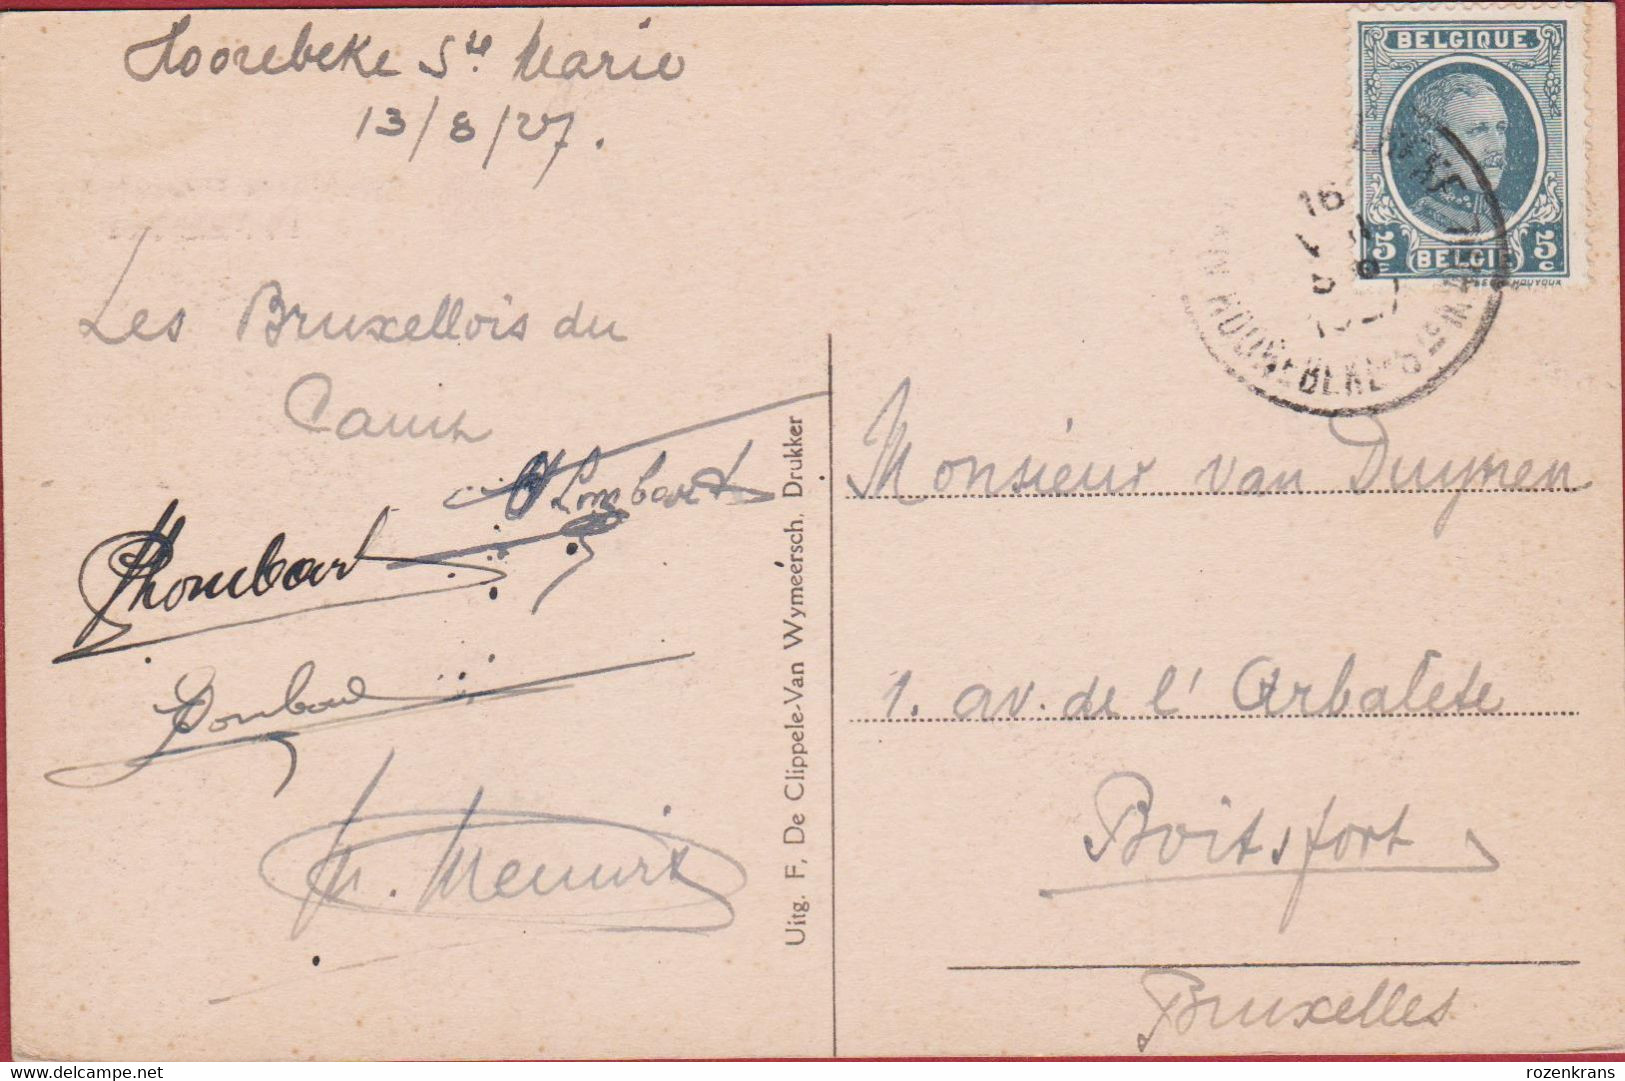 Hoorebeke Ste Marie
13/8/27.
Les Bruxellois du
Camp
Lombart
Lombart
Lombart
Uitg. F. De Clippele-Van Wymeersch, Drukker
BELGIQUE
5c BELGIË 5c
HOUYOUX
16
HOOREBEKE
Monsieur van Duynen
1. av. de l'Arbalete
Boitsfort
Bruxelles
delcampe.net
rozenkrans